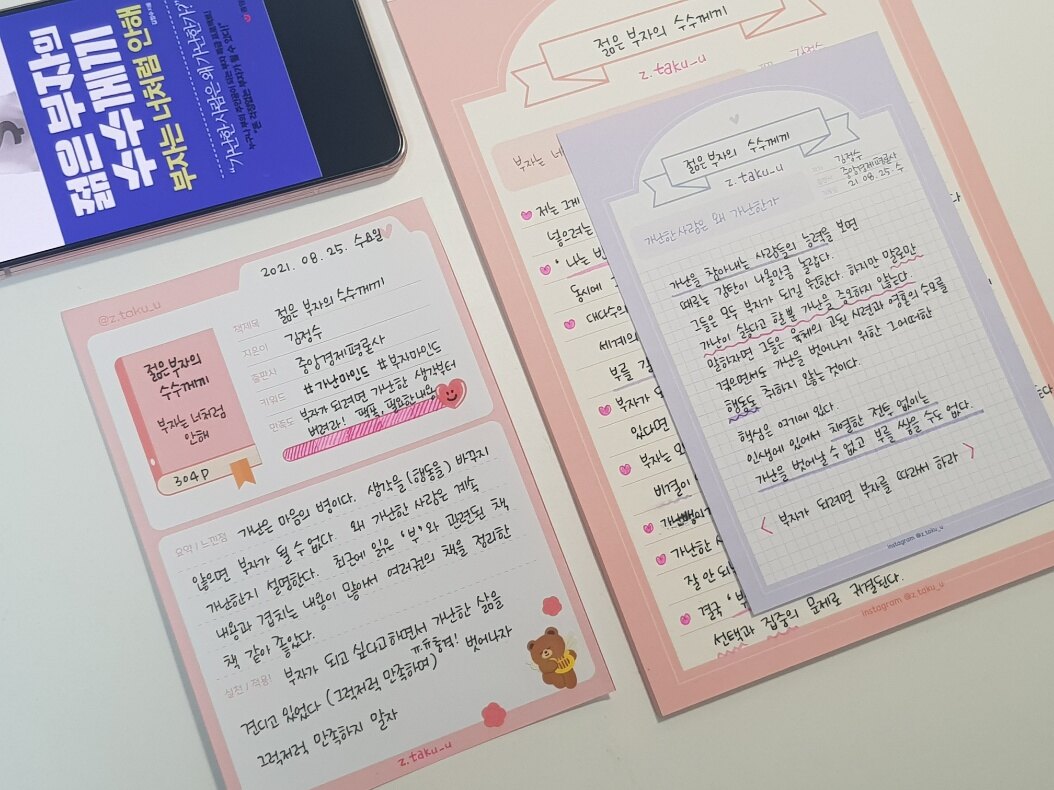 젊은 부자의
수수께끼
부자는 너처럼 안해
"가난한 사람은 왜 가난한가?"
@z.taku_u
2021. 08. 25. 수요일
책제목 젊은 부자의 수수께끼
지은이 김정수
출판사 중앙경제평론사
키워드 #가난마인드 #부자마인드
만족도 부자가 되려면 가난한 생각부터
버려라! 팩폭, 필요한 내용
젊은 부자의
수수께끼
부자는 너처럼
안해
304P
요약 / 느낀점 가난은 마음의 병이다. 생각을(행동을) 바꾸지
않으면 부자가 될 수 없다. 왜 가난한 사람은 계속
가난한지 설명한다. 최근에 읽은 '부'와 관련된 책
내용과 겹치는 내용이 많아서 여러권의 책을 정리한
책 같아 좋았다.
실천 / 적용! 부자가 되고 싶다고하면서 가난한 삶을
견디고 있었다 (그럭저럭 만족하며) ㅠㅠ충격! 벗어나자
그럭저럭 만족하지 말자
z.taku_u
젊은 부자의 수수께끼
z.taku_u
김정수
부자는 너
저는 그게
넣으려는
' 나는 반
동시에
대다수의
세계의
부를
부자가
있다면
부자는
비결이
가난한 사
잘 안 되
결국 '부
선택과 집중의 문제로 귀결된다.
instagram @z.taku_u
젊은 부자의 수수께끼
z.taku_u
김정수
중앙경제평론사
21. 08. 25. 수
가난한 사람은 왜 가난한가
가난을 참아내는 사람들의 능력을 보면
때로는 감탄이 나올만큼 놀랍다.
그들은 모두 부자가 되길 원한다. 하지만 말로만
가난이 싫다고 할 뿐 가난을 증오하지 않는다.
말하자면 그들은 육체의 고된 시련과 영혼의 수모를
겪으면서도 가난을 벗어나기 위한 그 어떠한
행동도 취하지 않는 것이다.
핵심은 여기에 있다.
인생에 있어서 치열한 전투 없이는
가난을 벗어날 수 없고 부를 쌓을 수도 없다.
< 부자가 되려면 부자를 따라서 하라 >
instagram @z.taku_u